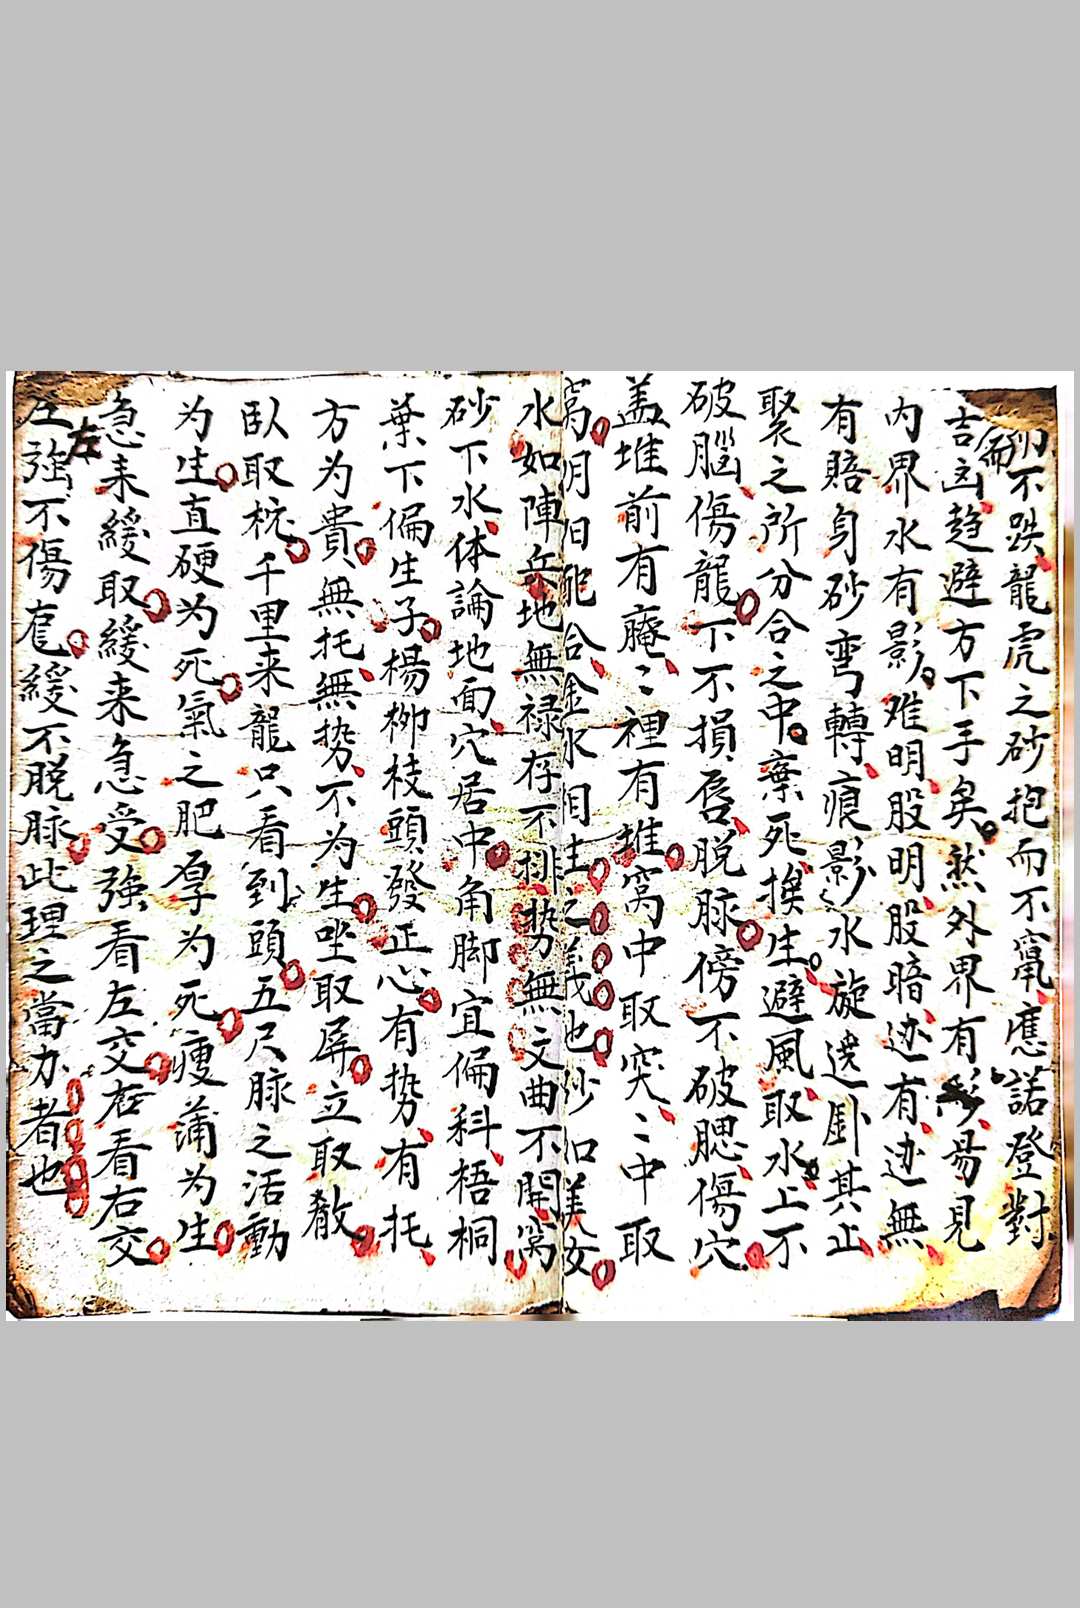 不跌龍虎之砂抱而不竄應諾登對
而
吉凶趋避方下手矣然外界有影易見
内界水有影难明股明股暗边有边無
有賠身砂弯轉痕影水旋遶卧其止
聚之所分合之中棄死挨生避風取水上不
破腦傷龍下不損唇脱脉傍不破腮傷穴
盖堆前有窩〻裡有堆窝中取突〻中取
合金水相生之義也
水如陣兵地無禄存不排势無文曲不開窝
砂下水体論地面穴居中角脚宜偏科梧桐
葉下偏生子楊柳枝頭發正心有势有托
方为貴無托無势不为生坐取屏立取
卧取枕千里来龍只看到頭五尺脉之活動
为生直硬为死氣之肥厚为死瘦蒲为生
急来緩取緩来急受強看左交看右交
左
強不傷緩不脱脉此理之當力者也